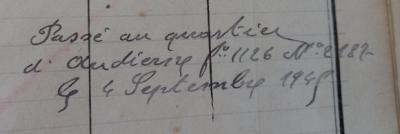 Passé au quartier
d'Audierne fo 1126 No 2187
le 4 Septembre 1945